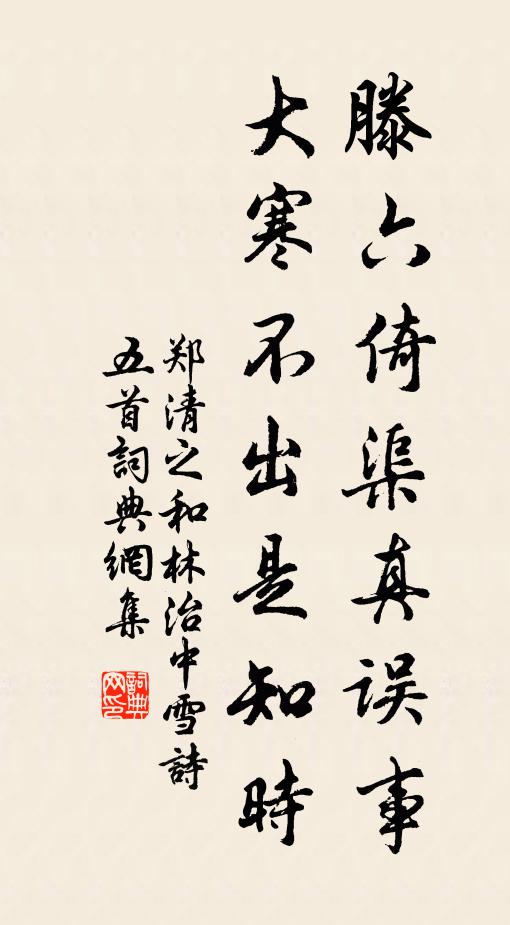 滕六倚渠真误事
大寒不出是知時
郑清之和林治中雪詩
五首詞典網集
詞典
网印